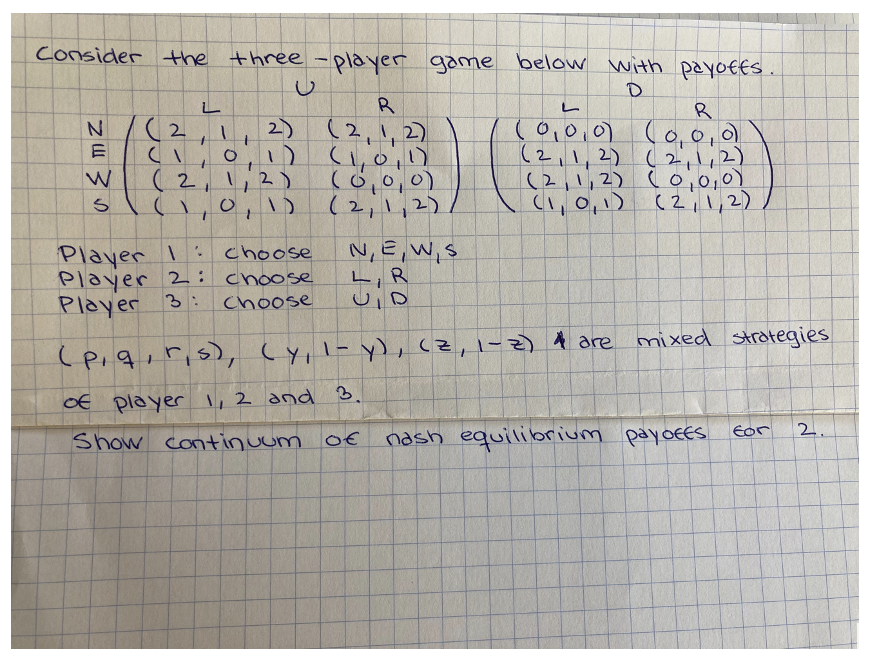 Consider the three-player game below with payoffs.
U D
L R L R
N (2, 1, 2) (2, 1, 2) (0, 0, 0) (0, 0, 0)
E (1, 0, 1) (1, 0, 1) (2, 1, 2) (2, 1, 2)
W (2, 1, 2) (0, 0, 0) (2, 1, 2) (0, 0, 0)
S (1, 0, 1) (2, 1, 2) (1, 0, 1) (2, 1, 2)
Player 1: choose N, E, W, S
Player 2: choose L, R
Player 3: choose U, D
(p, q, r, s), (y, 1-y), (z, 1-z) are mixed strategies
of player 1, 2 and 3.
Show continuum of nash equilibrium payoffs for 2.